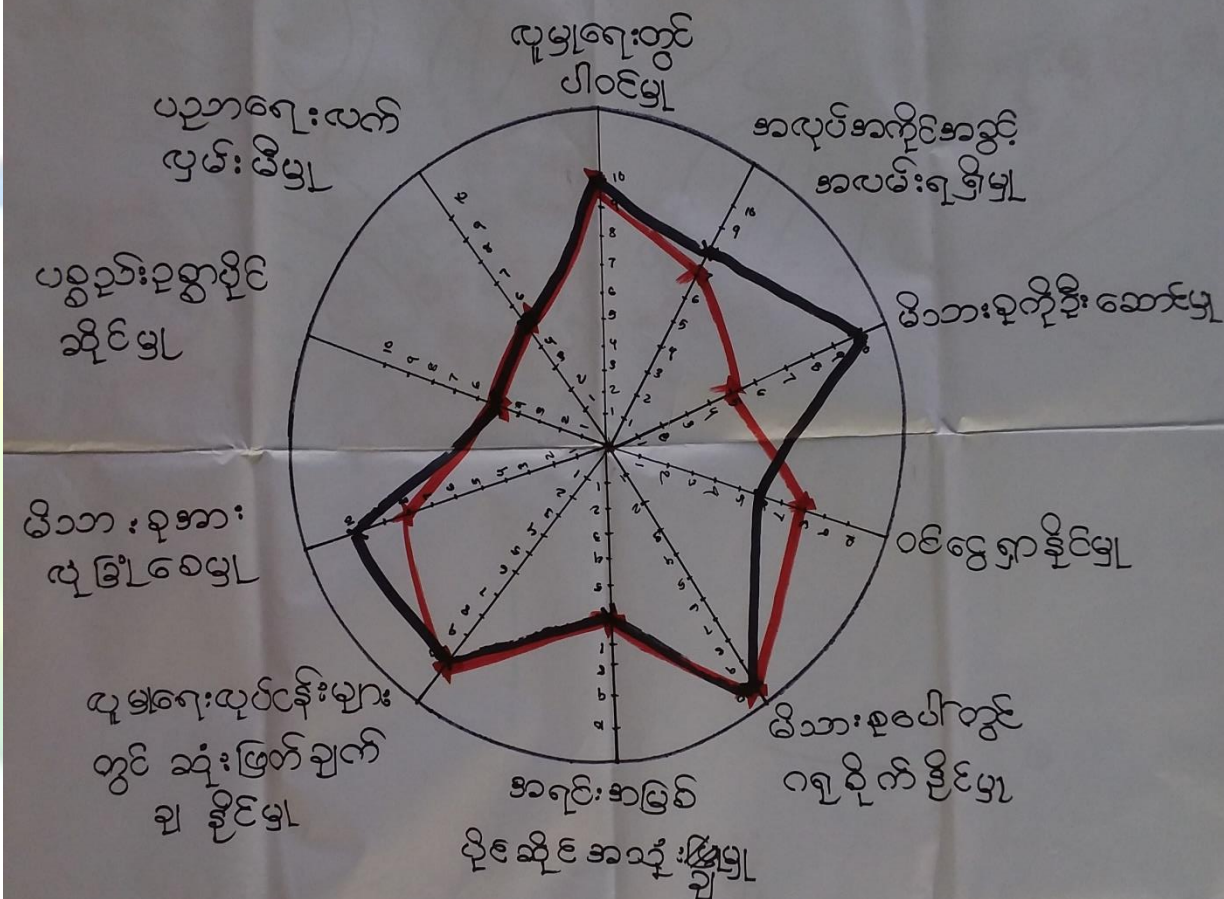 လူမှုရေးတွင်
ပါဝင်မှု
အလုပ်အကိုင်အခွင့်
အလမ်းရရှိမှု
မိသားစုကိုဦးဆောင်မှု
ဝင်ငွေရှာနိုင်မှု
မိသားစုပေါ်တွင်
ဂရုစိုက်နိုင်မှု
အရင်းအမြစ်
ပိုင်ဆိုင်အသုံးချမှု
လူမှုရေးလုပ်ငန်းများ
တွင် ဆုံးဖြတ်ချက်
ချနိုင်မှု
မိသားစုအား
လုံခြုံစေမှု
ပစ္စည်းဥစ္စာပိုင်
ဆိုင်မှု
ပညာရေးလက်
လှမ်းမီမှု